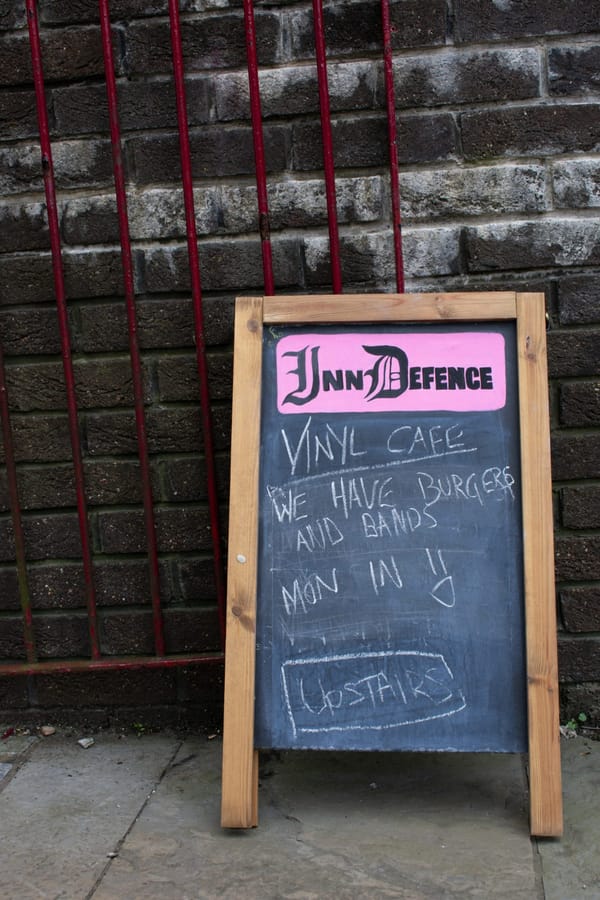 INNDEFENCE
VINYL CAFE
WE HAVE BURGERS
AND BANDS
MON IN !!
UPSTAIRS